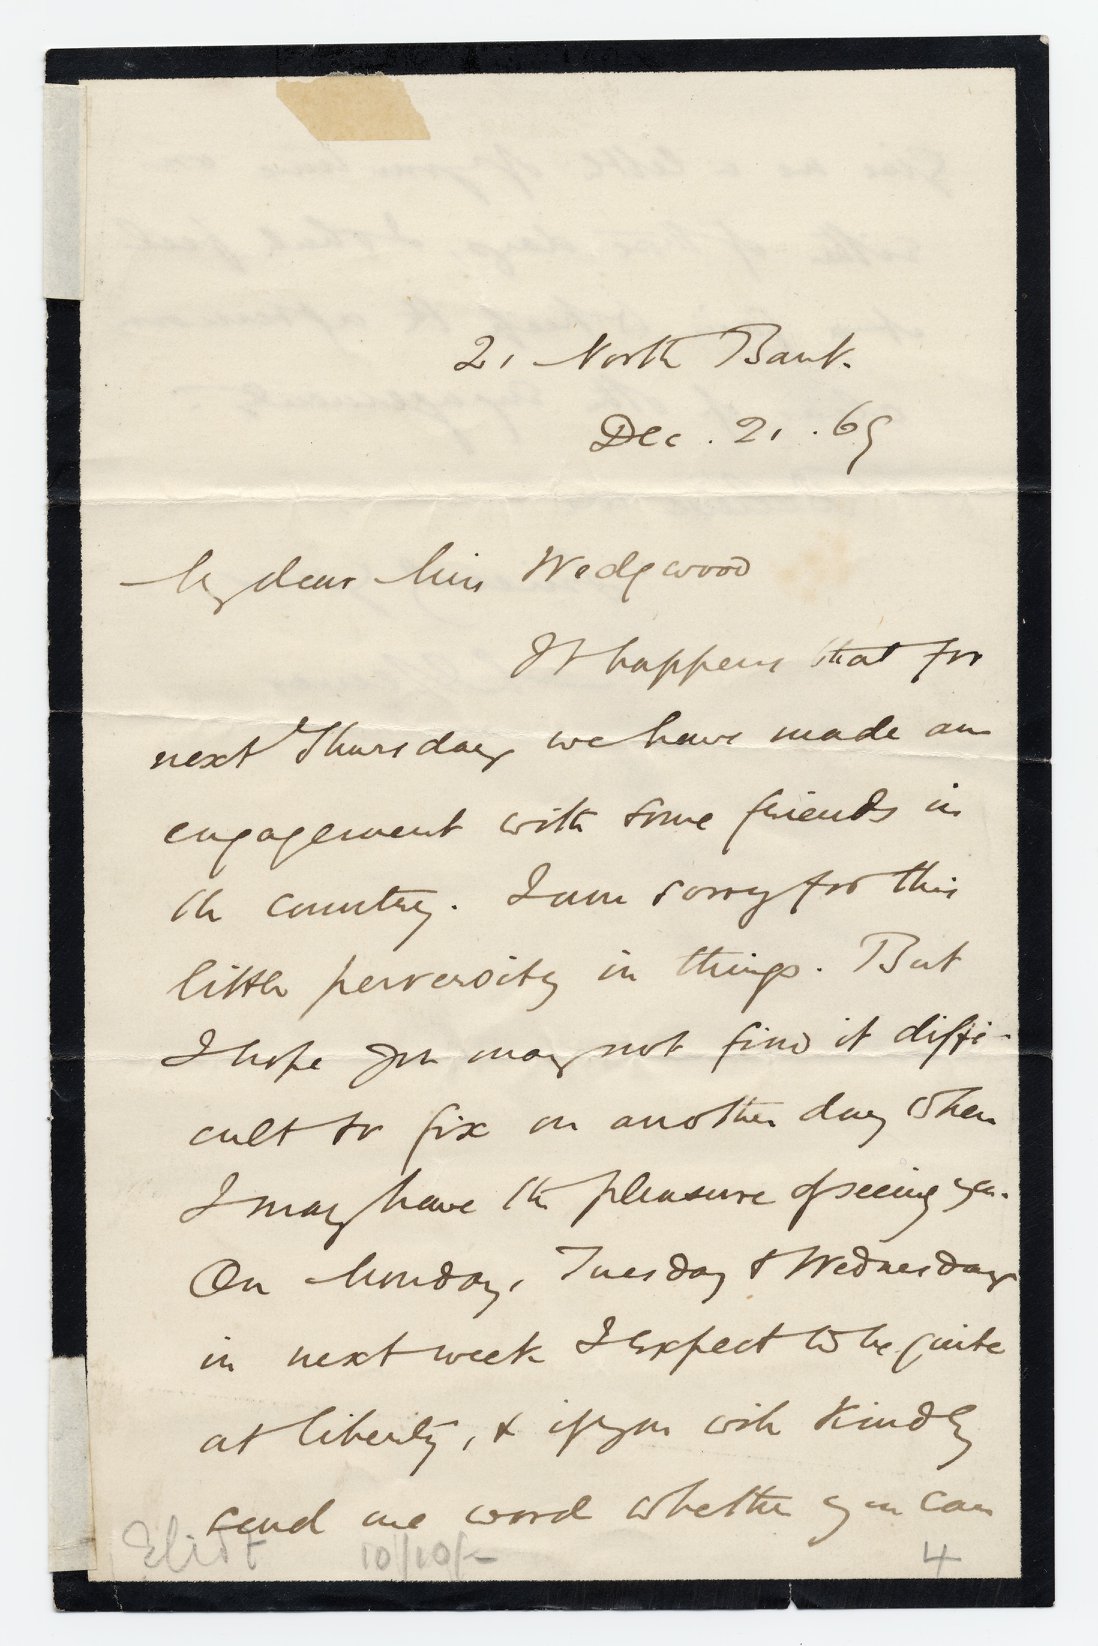 21 North Bank.
Dec. 21. 69
My dear Miss Wedgwood
It happens that for
next Thursday we have made an
engagement with some friends in
the country. I am sorry for this
little perversity in things. But
I hope you may not find it diffi-
cult to fix on another day when
I may have the pleasure of seeing you.
On Monday, Tuesday & Wednesday
in next week I expect to be quite
at liberty, & if you will kindly
send me word whether you can
Eliot 10/10/- 4